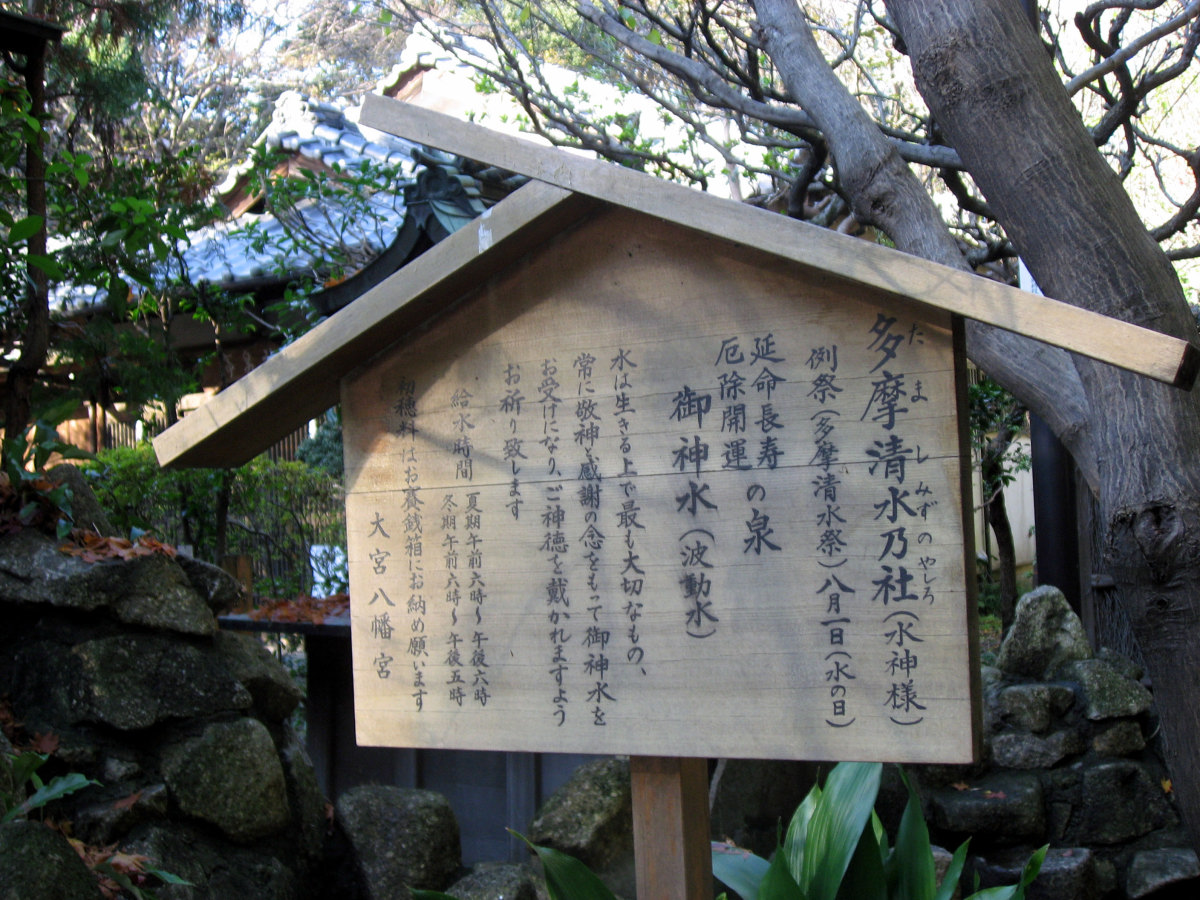 多摩清水乃社(水神様)
たま しみずのやしろ
例祭(多摩清水祭)八月一日(水の日)
延命長寿
厄除開運
の泉
御神水(波動水)
水は生きる上で最も大切なもの、
常に敬神と感謝の念をもって御神水を
お受けになり、ご神徳を戴かれますよう
お祈り致します
給水時間
夏期午前六時～午後六時
冬期午前六時～午後五時
初穂料はお賽銭箱にお納め願います
大宮八幡宮